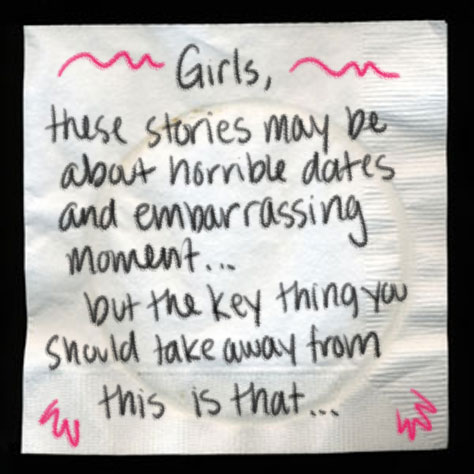 Girls,
these stories may be
about horrible dates
and embarrassing
moment...
but the key thing you
should take away from
this is that...